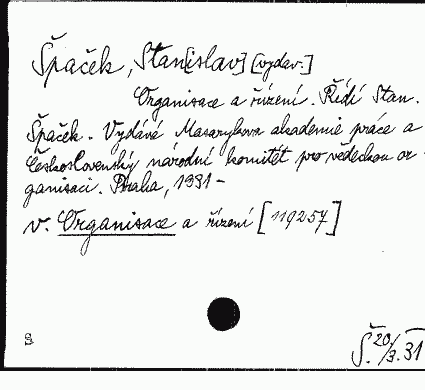 Špaček, Stan[islav] [vydav.]
Organisace a řízení. Řídí Stan.
Špaček. Vydává Masarykova akademie práce a
Československý národní komitét pro vědeckou or-
ganisaci. Praha, 1931-
v. Organisace a řízení [119257]
S
Š. 20/3. 31